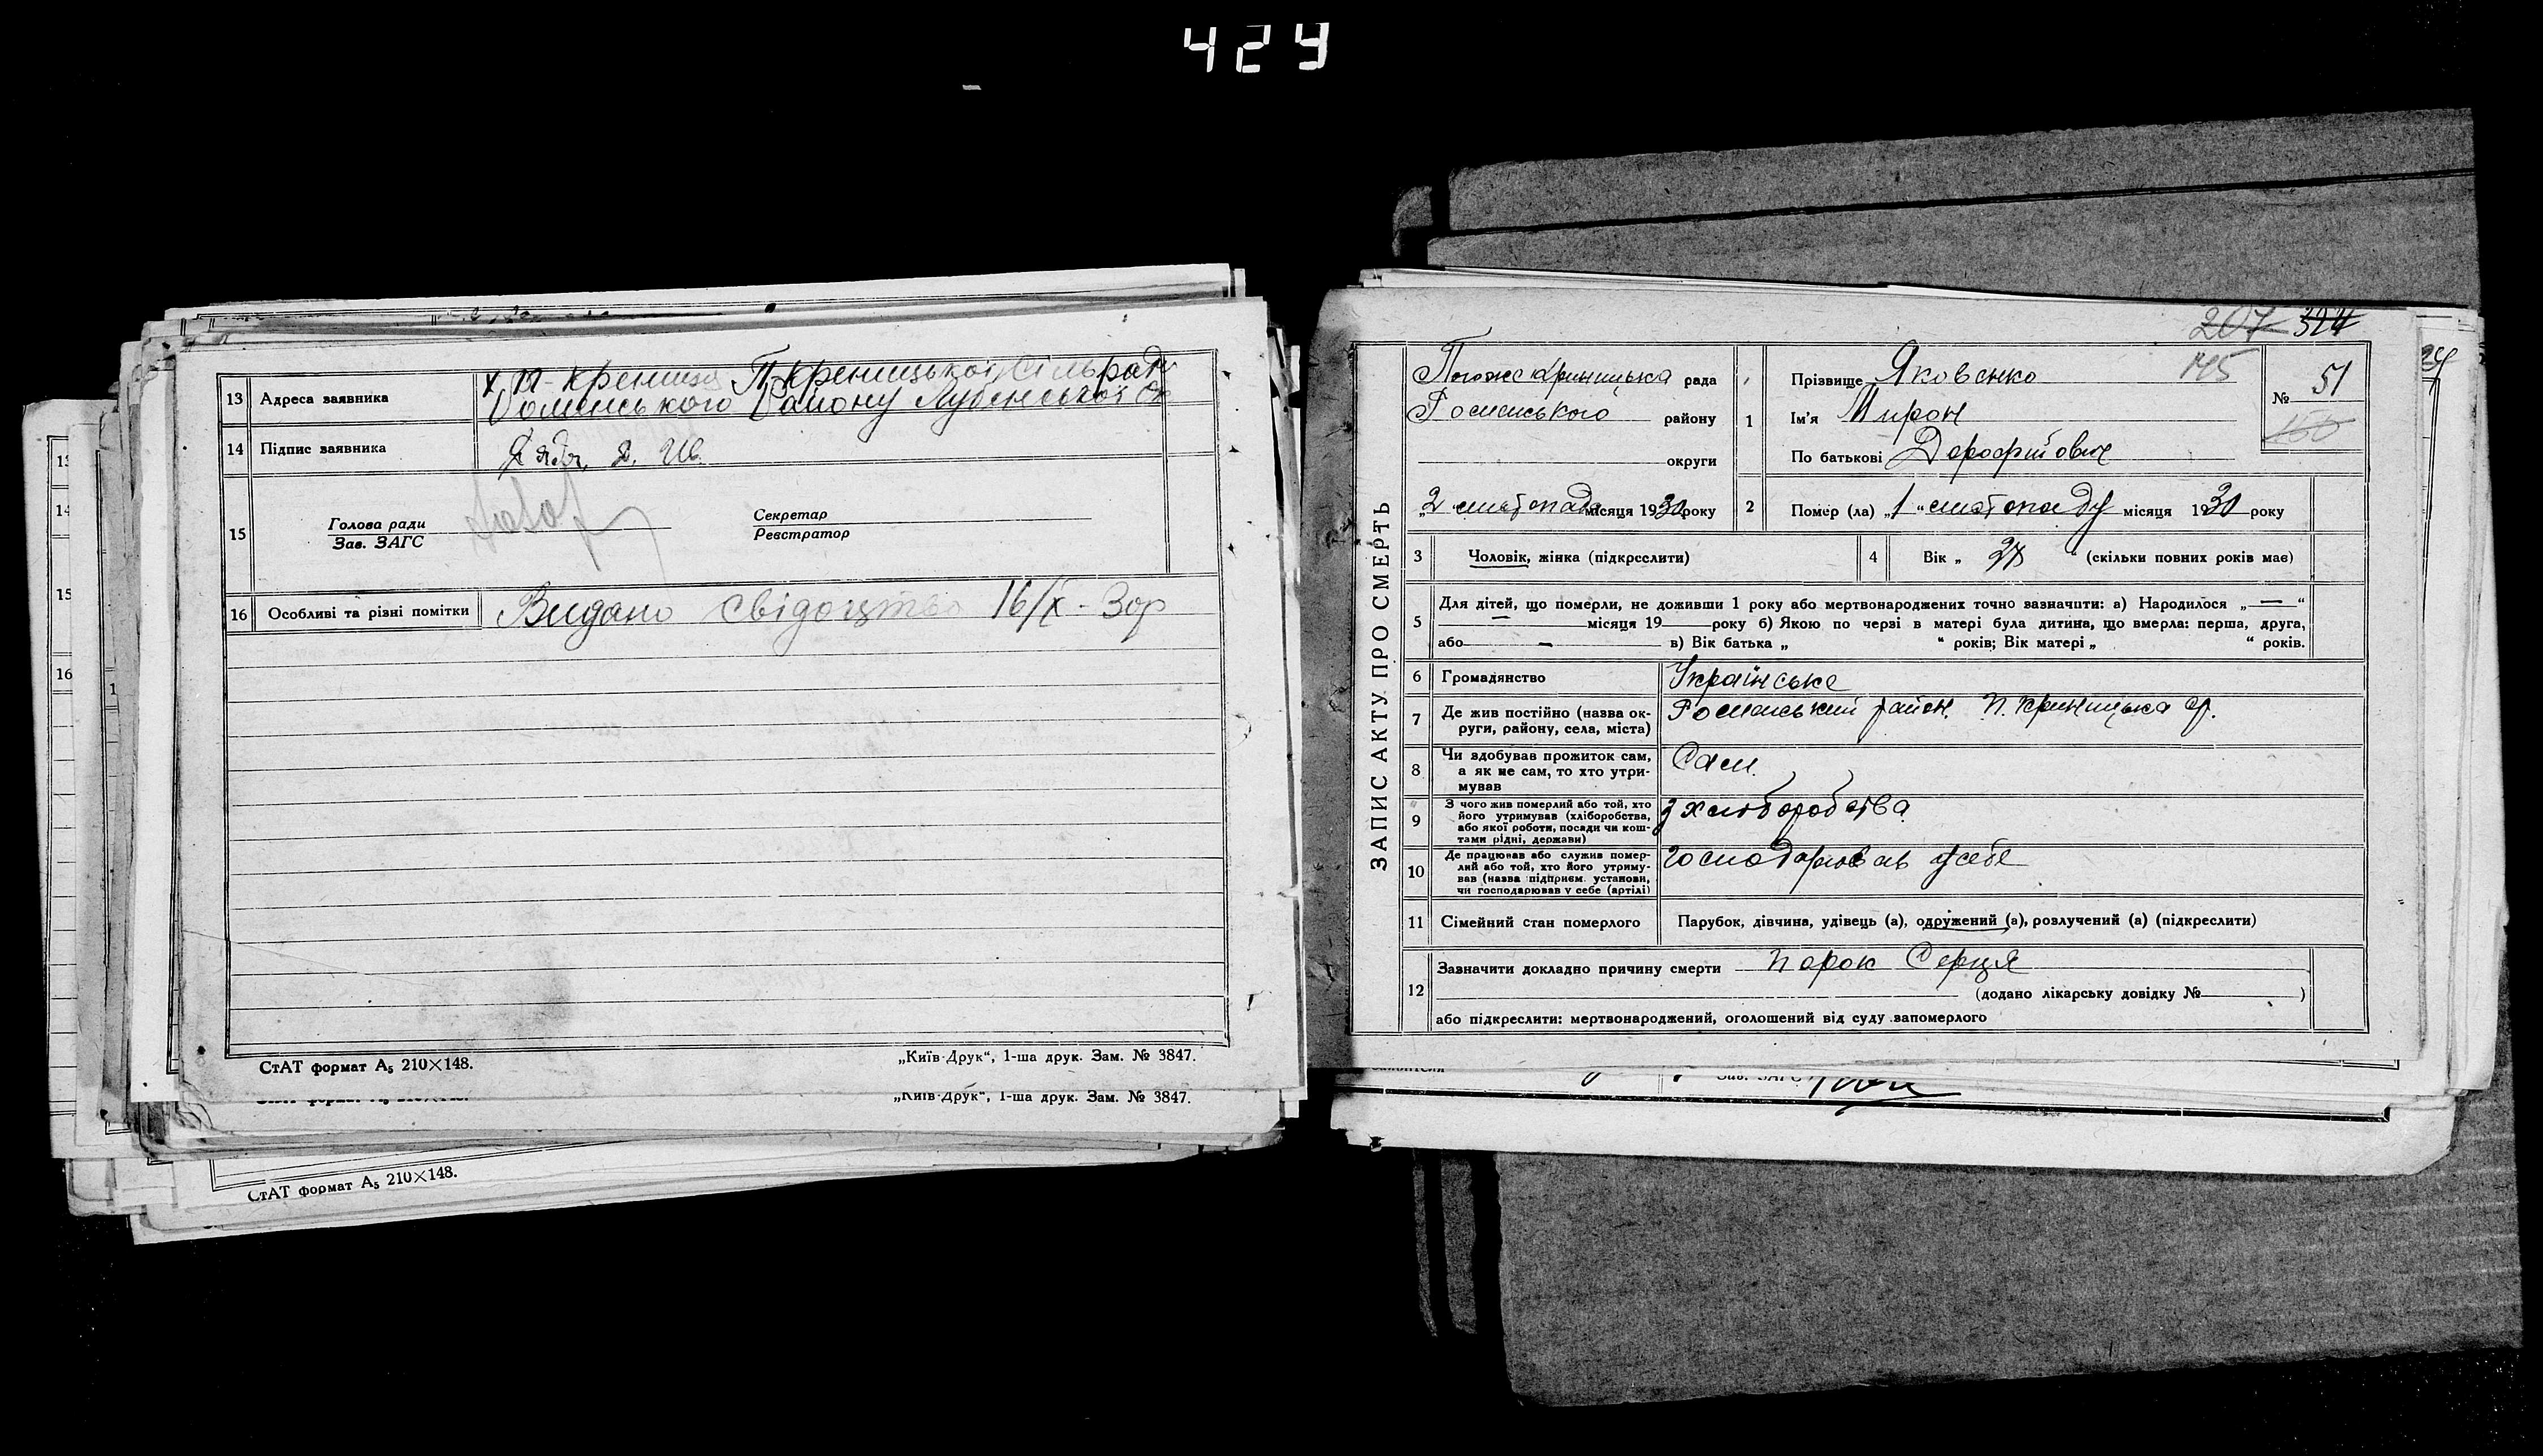 429
13 Адреса заявника х. П-Крениця П-Креницької Сільради
Роменського Району Лубенської Ок
14 Підпис заявника
15 Голова ради
Зав. ЗАГС
Секретар
Реєстратор
16 Особливі та різні помітки Видано свідоцтво 16/X - 30р
СтАТ формат А5 210×148.
„Київ-Друк“, 1-ша друк. Зам. № 3847.
„Київ-Друк“, 1-ша друк. Зам. № 3847.
СтАТ формат А5 210×148.
207 324
ЗАПИС АКТУ ПРО СМЕРТЬ
Погожекриницька рада
Роменського району
округи
„2 листопада місяця 1930 року
1 Прізвище Яковенко 145
Ім'я Мирон
По батькові Дорофійович
№ 51
150
2 Помер (ла) „1“ листопаду місяця 1930 року
3 Чоловік, жінка (підкреслити)
4 Вік „ 27 “ (скільки повних років має)
5 Для дітей, що померли, не доживши 1 року або мертвонароджених точно зазначити: а) Народилося „ — “
— місяця 19 року б) Якою по черзі в матері була дитина, що вмерла: перша, друга,
або — в) Вік батька „ “ років; Вік матері „ “ років.
6 Громадянство Українське
7 Де жив постійно (назва ок-
руги, району, села, міста) Роменський район, П. Криницька ср.
8 Чи здобував прожиток сам,
а як не сам, то хто утри-
мував Сам.
9 З чого жив померлий або той, хто
його утримував (хліборобства,
або якої роботи, посади чи кош-
тами рідні, держави) з хліборобства
10 Де працював або служив помер-
лий або той, хто його утриму-
вав (назва підприєм. установи,
чи господарював у себе (артілі) господарював у себе
11 Сімейний стан померлого Парубок, дівчина, удівець (а), одружений (а), розлучений (а) (підкреслити)
12 Зазначити докладно причину смерти Порок Серця
(додано лікарську довідку № )
або підкреслити: мертвонароджений, оголошений від суду запомерлого